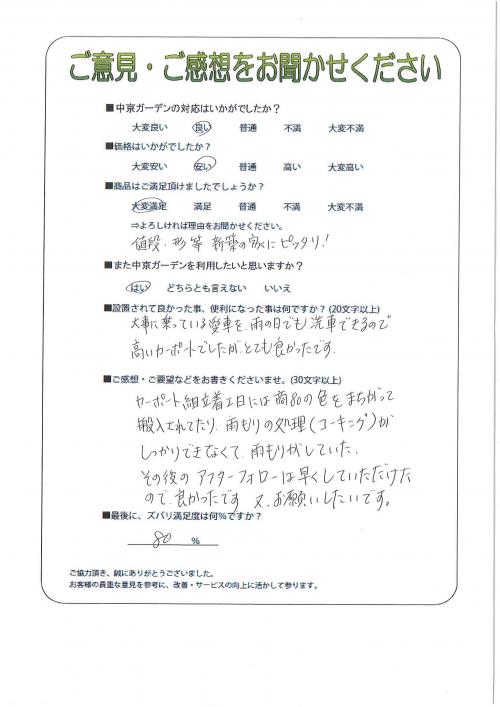 ご意見・ご感想をお聞かせください
■中京ガーデンの対応はいかがでしたか？
大変良い 良い 普通 不満 大変不満
■価格はいかがでしたか？
大変安い 安い 普通 高い 大変高い
■商品はご満足頂けましたでしょうか？
大変満足 満足 普通 不満 大変不満
⇒よろしければ理由をお聞かせください。
値段.形 等 新築の家にピッタリ!
■また中京ガーデンを利用したいと思いますか？
はい どちらとも言えない いいえ
■設置されて良かった事、便利になった事は何ですか？(20文字以上)
大事に乗っている愛車を、雨の日でも洗車できるので
高いカーポートでしたが、とても良かったです.
■ご感想・ご要望などをお書きくださいませ。(30文字以上)
カーポート組立着工日には商品の色をまちがって
搬入されてたり、雨もりの処理(コーキング)が
しっかりできなくて、雨もりがしていた.
その後のアフターフォローは早くしていただけた
ので、良かったです 又、お願いしたいです。
■最後に、ズバリ満足度は何%ですか？
80 %
ご協力頂き、誠にありがとうございました。
お客様の貴重な意見を参考に、改善・サービスの向上に活かして参ります。